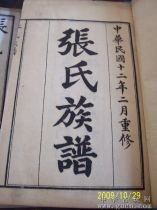 中華民國十二年二月重修
張氏族譜
2009/10/29